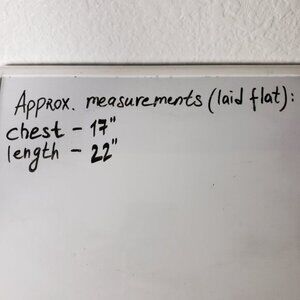 Approx. measurements (laid flat):
chest - 17"
length - 22"